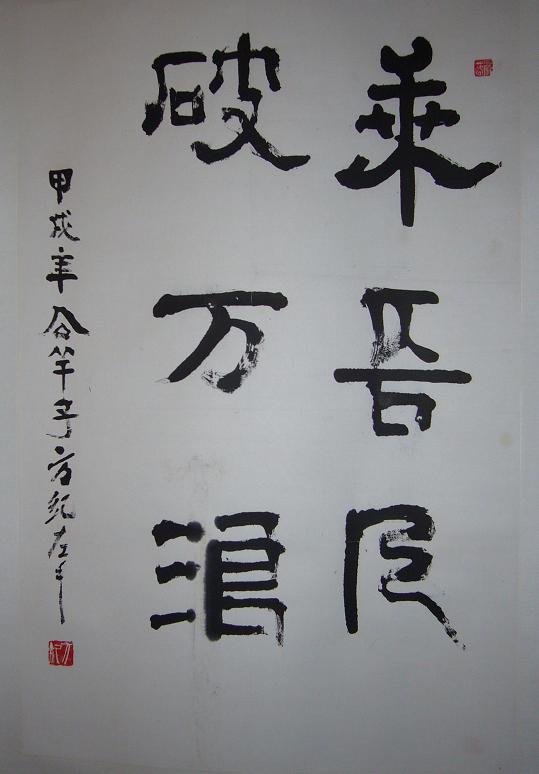 乘長风
破万浪
甲戌年公羊子方纪左手